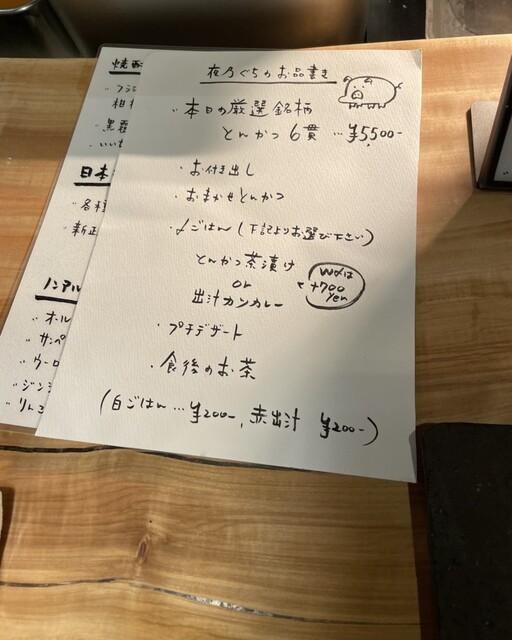 夜乃ぐちのお品書き
・本日の厳選銘柄
とんかつ6貫 …¥5,500-
・お付き出し
・おまかせとんかつ
・〆ごはん(下記よりお選び下さい)
とんかつ茶漬け
or
出汁カツカレー
W〆は
+700
yen
・プチデザート
・食後のお茶
(白ごはん…¥200-, 赤出汁 ¥200-)
焼酎
日本
各種
新正
ノンアル
オール
サンペ
ウーロ
ジンジ
りんご